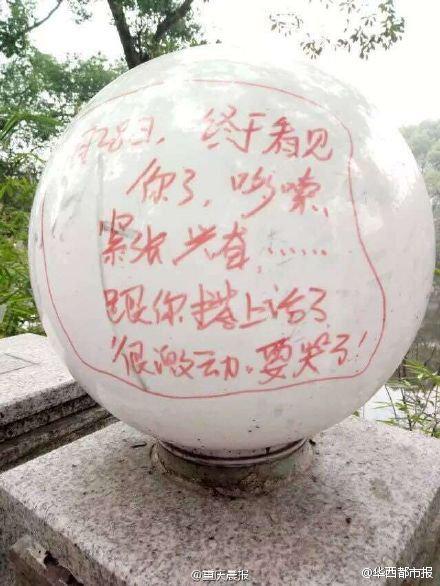 终于看见
你了，哆嗦，
紧张兴奋……
跟你搭上话了
很激动。要哭了！
@重庆晨报
@华西都市报